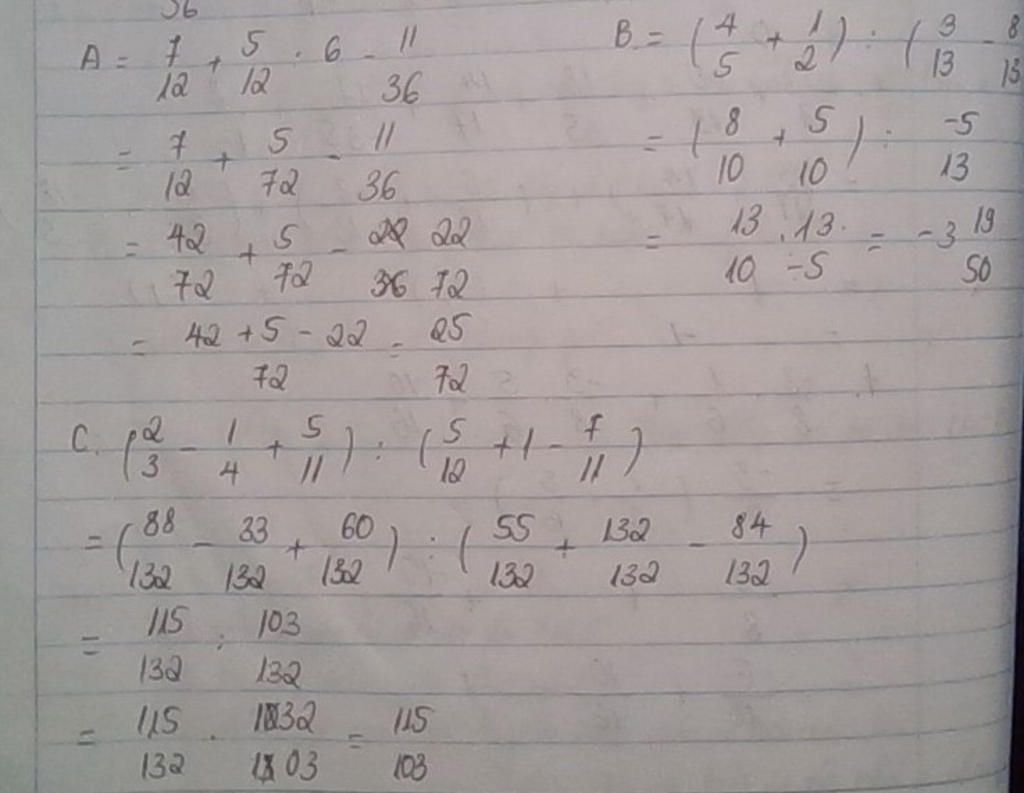 36
A = 7/12 + 5/12 : 6 - 11/36
= 7/12 + 5/72 - 11/36
= 42/72 + 5/72 - 22/72
= (42 + 5 - 22)/72 = 25/72
B = (4/5 + 1/2) : (3/13 - 8/13
= (8/10 + 5/10) : -5/13
= 13/10 . 13/-5 = -3 19/50
C. (2/3 - 1/4 + 5/11) : (5/12 + 1 - 7/11)
= (88/132 - 33/132 + 60/132) : (55/132 + 132/132 - 84/132)
= 115/132 : 103/132
= 115/132 . 132/103 = 115/103